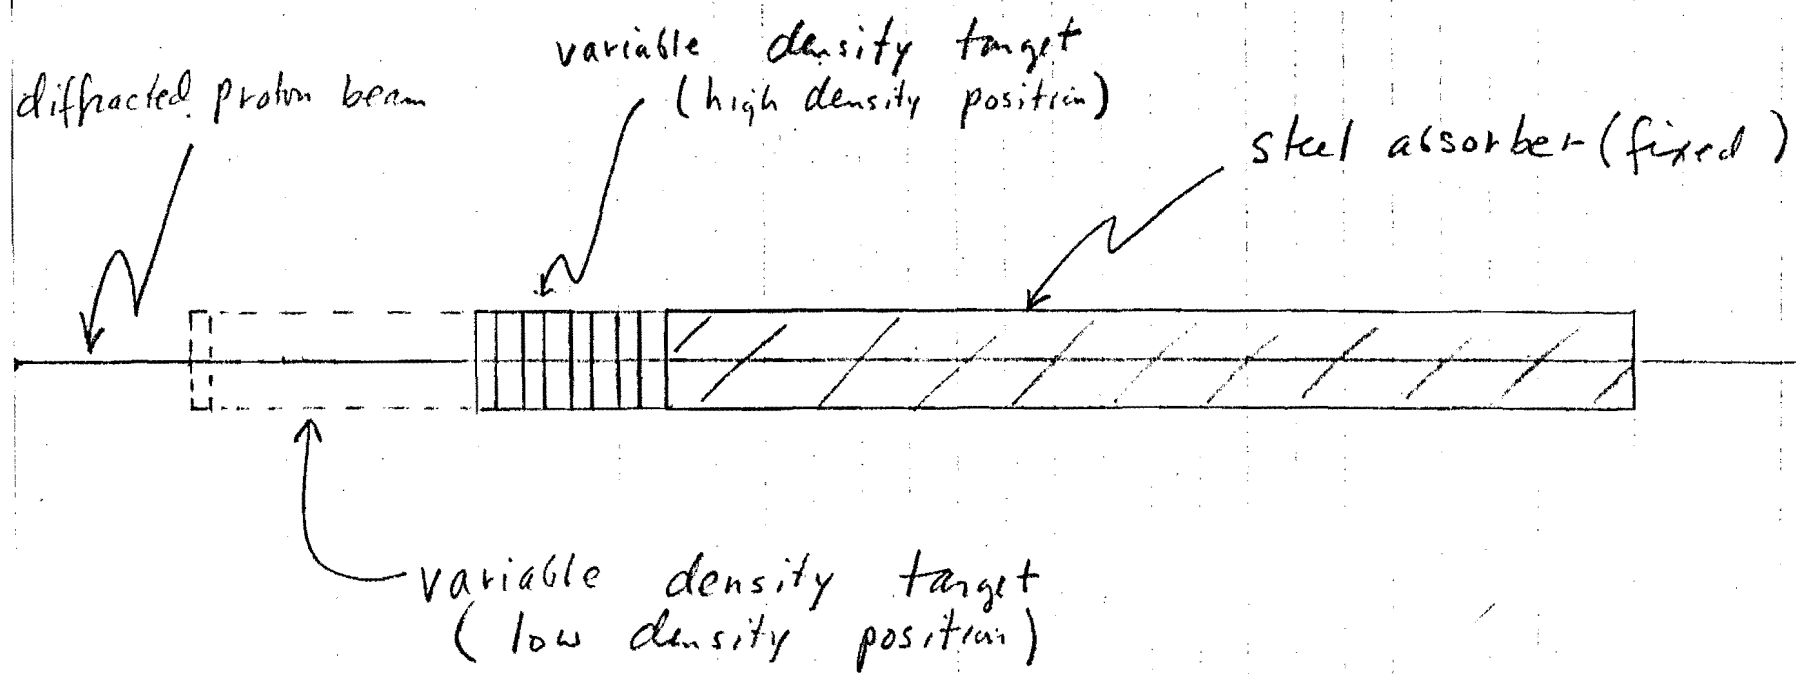 variable density target
(high density position)
diffracted proton beam
steel absorber (fixed)
variable density target
(low density position)